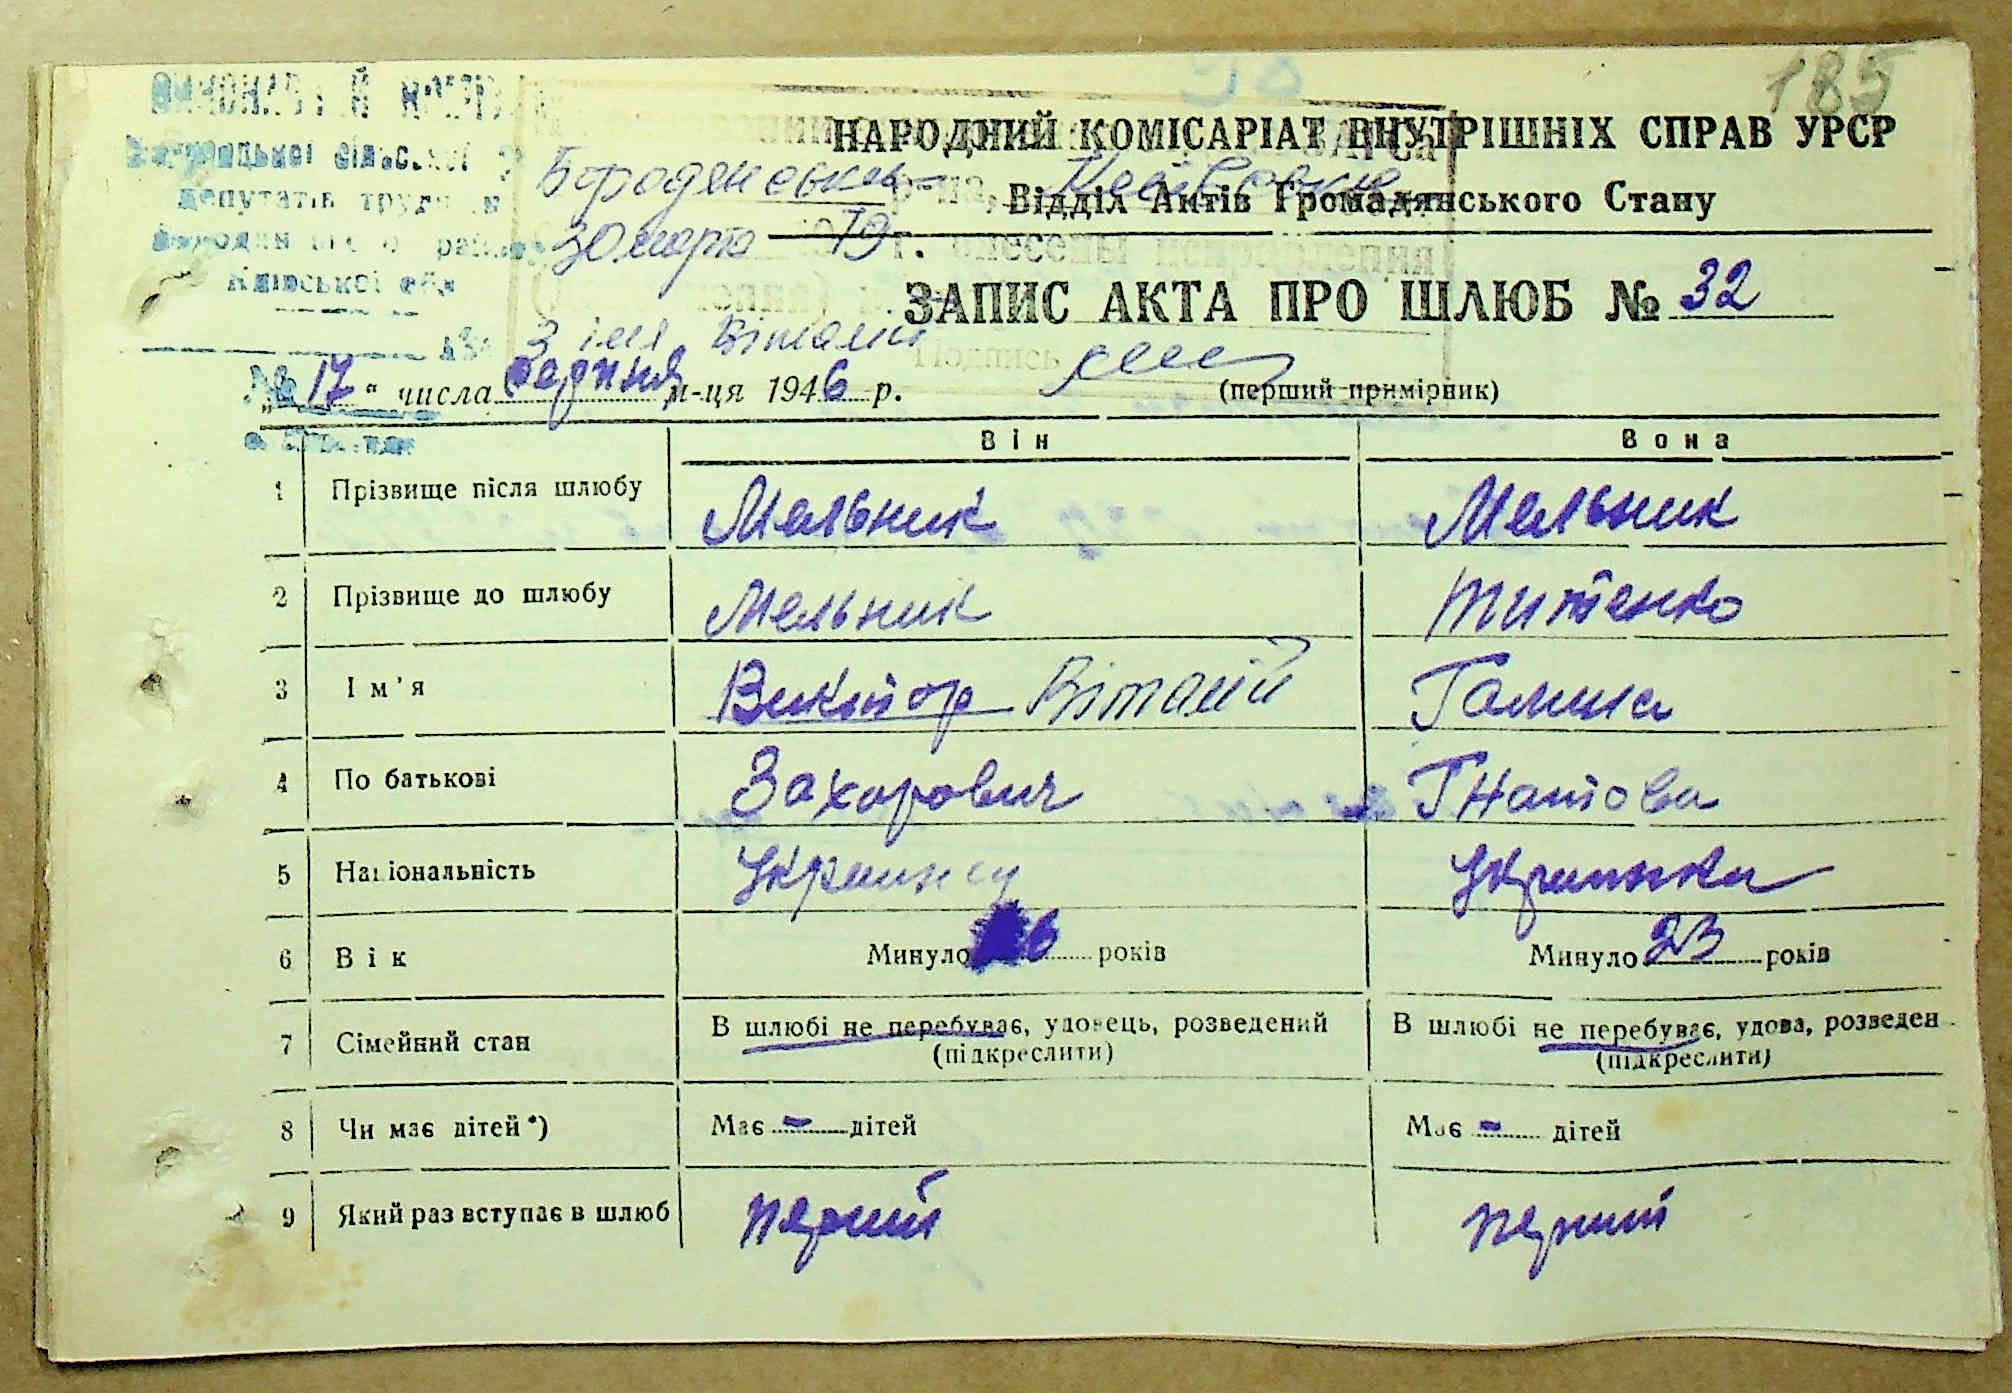 185
НАРОДНИЙ КОМІСАРІАТ ВНУТРІШНІХ СПРАВ УРСР
Відділ Актів Громадянського Стану
сільської
депутатів
Київської обл
30 марта 79 г.
ЗАПИС АКТА ПРО ШЛЮБ № 32
З імя Віталій
Подпись
„17“ числа серпня м-ця 1946 р.
(перший примірник)
Він Вона
1 Прізвище після шлюбу Мельник Мельник
2 Прізвище до шлюбу Мельник Титенко
3 Ім'я Виктор Віталій Галина
4 По батькові Захарович Гнатова
5 Національність Украинец Украинка
6 Вік Минуло 6 років Минуло 23 років
7 Сімейний стан В шлюбі не перебуває, удовець, розведений В шлюбі не перебуває, удова, розведен
(підкреслити) (підкреслити)
8 Чи має дітей*) Має - дітей Має - дітей
9 Який раз вступає в шлюб перший перший